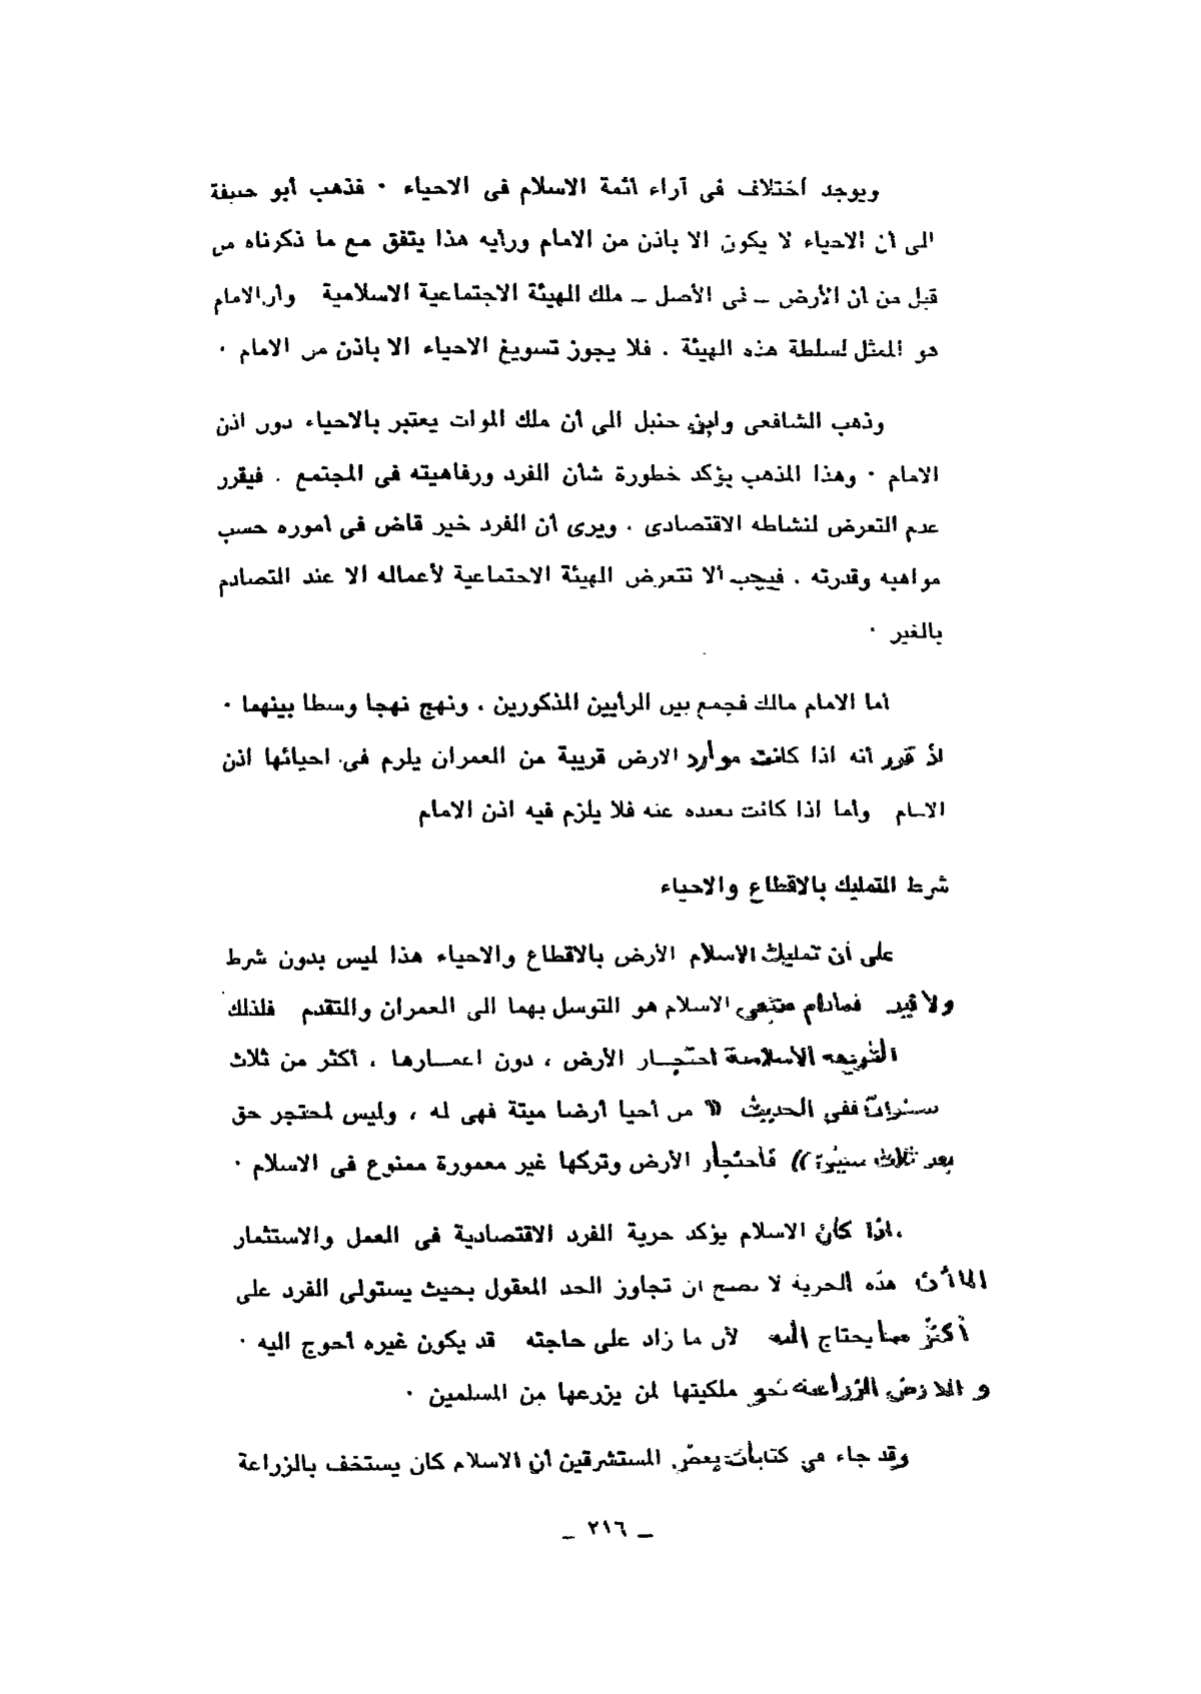 ويوجد اختلاف فى آراء ائمة الاسلام فى الاحياء ٠ فذهب أبو حنيفة
الى أن الاحياء لا يكون الا باذن من الامام ورأيه هذا يتفق مع ما ذكرناه من
قبل من أن الأرض ــ فى الأصل ــ ملك الهيئة الاجتماعية الاسلامية وأن الامام
هو الممثل لسلطة هذه الهيئة . فلا يجوز تسويغ الاحياء الا باذن من الامام ٠
وذهب الشافعى وابن حنبل الى أن ملك الموات يعتبر بالاحياء دون اذن
الامام ٠ وهذا المذهب يؤكد خطورة شأن الفرد ورفاهيته فى المجتمع . فيقرر
عدم التعرض لنشاطه الاقتصادى . ويرى أن الفرد خير قاض فى أموره حسب
مواهبه وقدرته . فيجب ألا تتعرض الهيئة الاجتماعية لأعماله الا عند التصادم
بالغير ٠
أما الامام مالك فجمع بين الرأيين المذكورين . ونهج نهجا وسطا بينهما ٠
اذ قرر أنه اذا كانت موارد الارض قريبة من العمران يلزم فى احيائها اذن
الامام وأما اذا كانت بعيده عنه فلا يلزم فيه اذن الامام
شرط التمليك بالاقطاع والاحياء
على أن تمليك الاسلام الأرض بالاقطاع والاحياء هذا ليس بدون شرط
ولا قيد فمادام الاسلام هو التوسل بهما الى العمران والتقدم فلذلك
الاسلامية احتجـار الأرض ، دون اعمـارها ، أكثر من ثلاث
سنوات ففى الحديث « من أحيا أرضا ميتة فهى له ، وليس لمحتجر حق
بعد ثلاث سنين )) فأحتجار الأرض وتركها غير معمورة ممنوع فى الاسلام ٠
اذا كان الاسلام يؤكد حرية الفرد الاقتصادية فى العمل والاستثمار
الا أن هذه الحرية لا يصح ان تجاوز الحد المعقول بحيث يستولى الفرد على
أكثر مما يحتاج اليه لأن ما زاد على حاجته قد يكون غيره أحوج اليه ٠
الزراعية ملكيتها لمن يزرعها من المسلمين ٠
وقد جاء فى كتابات بعض المستشرقين أن الاسلام كان يستخف بالزراعة
ــ ٢١٦ ــ